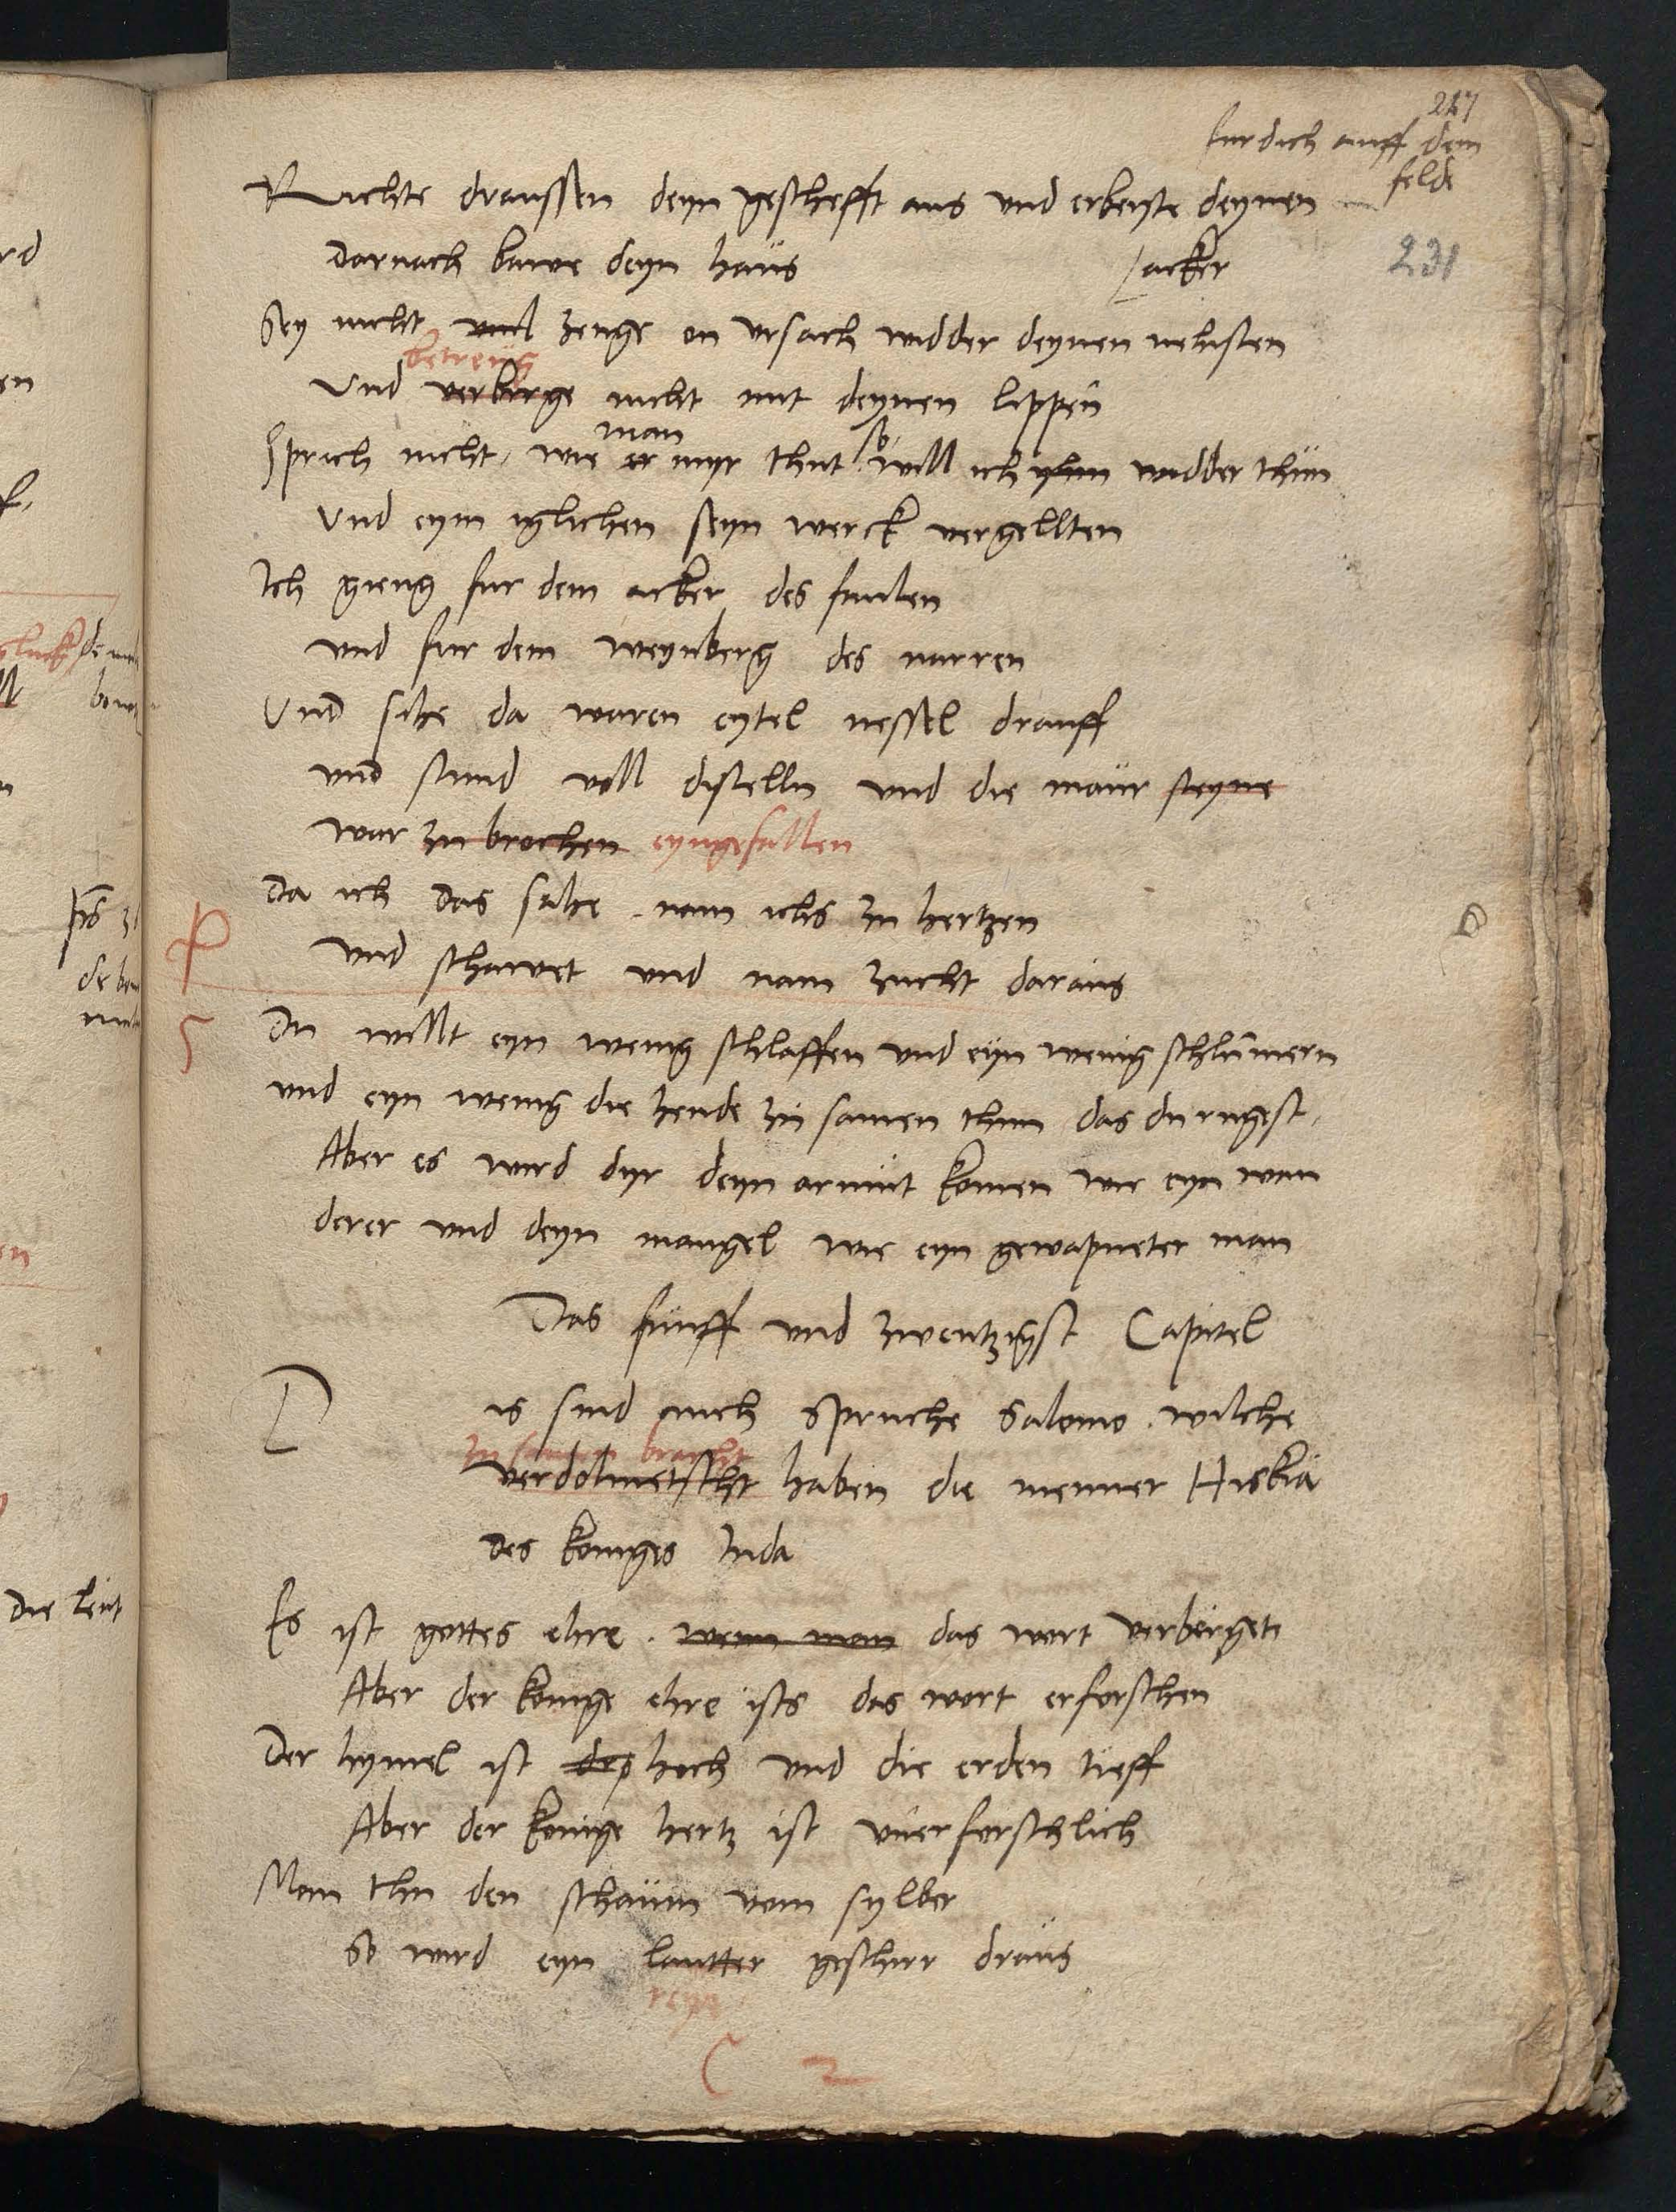 217
fur dich auff dem
felde
Richte draussen deyn geschefft aus und erbeyte deynen
acker
231
Darnach bawe deyn haus
Sey nicht zeuge on ursach widder deynen nehisten
betreug
Und verbirge nicht mit deynen lippen
man so
Sprich nicht, wie er myr thut will ich yhm widder thun
Und eym iglichen seyn werck vergellten
Ich gieng fur dem acker des faulen
und fur dem weynberg des narren
Und sihe da waren eytel nessel drauff
und stund voll distelln und die maur steyne
war zu brochen eyngefallen
Da ich das sahe, nam ichs zu hertzen
und schawet und nam zucht daraus
Du willt eyn wenig schlaffen und eyn wenig schlumern
und eyn wenig die hende zu samen thun das du rugest,
Aber es wird dyr deyn armut komen wie eyn wan
derer und deyn mangel wie eyn gewapneter man
Das funff und zwentzigst Capitel
D is sind auch spruche Salomo, wilche
zu samen bracht
verdolmetscht haben die menner Hiskia
des koniges Juda
Es ist gottes ehre, wenn man das wort verbirget
Aber der konige ehre ists das wort erforschen
Der hymel ist hoch und die erden tieff
Aber der konige hertz ist unerforschlich
Man thu den schaum vom sylber
So wird eyn lautter geschirr draus
reyn
C 2
die leut